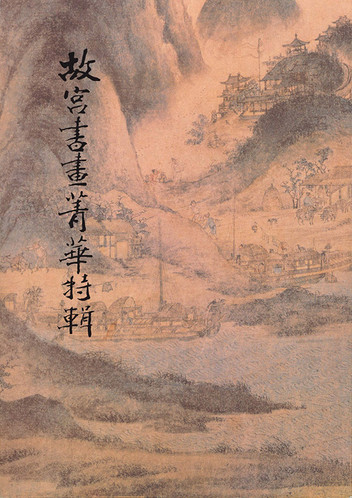 故宮書畫菁華特輯